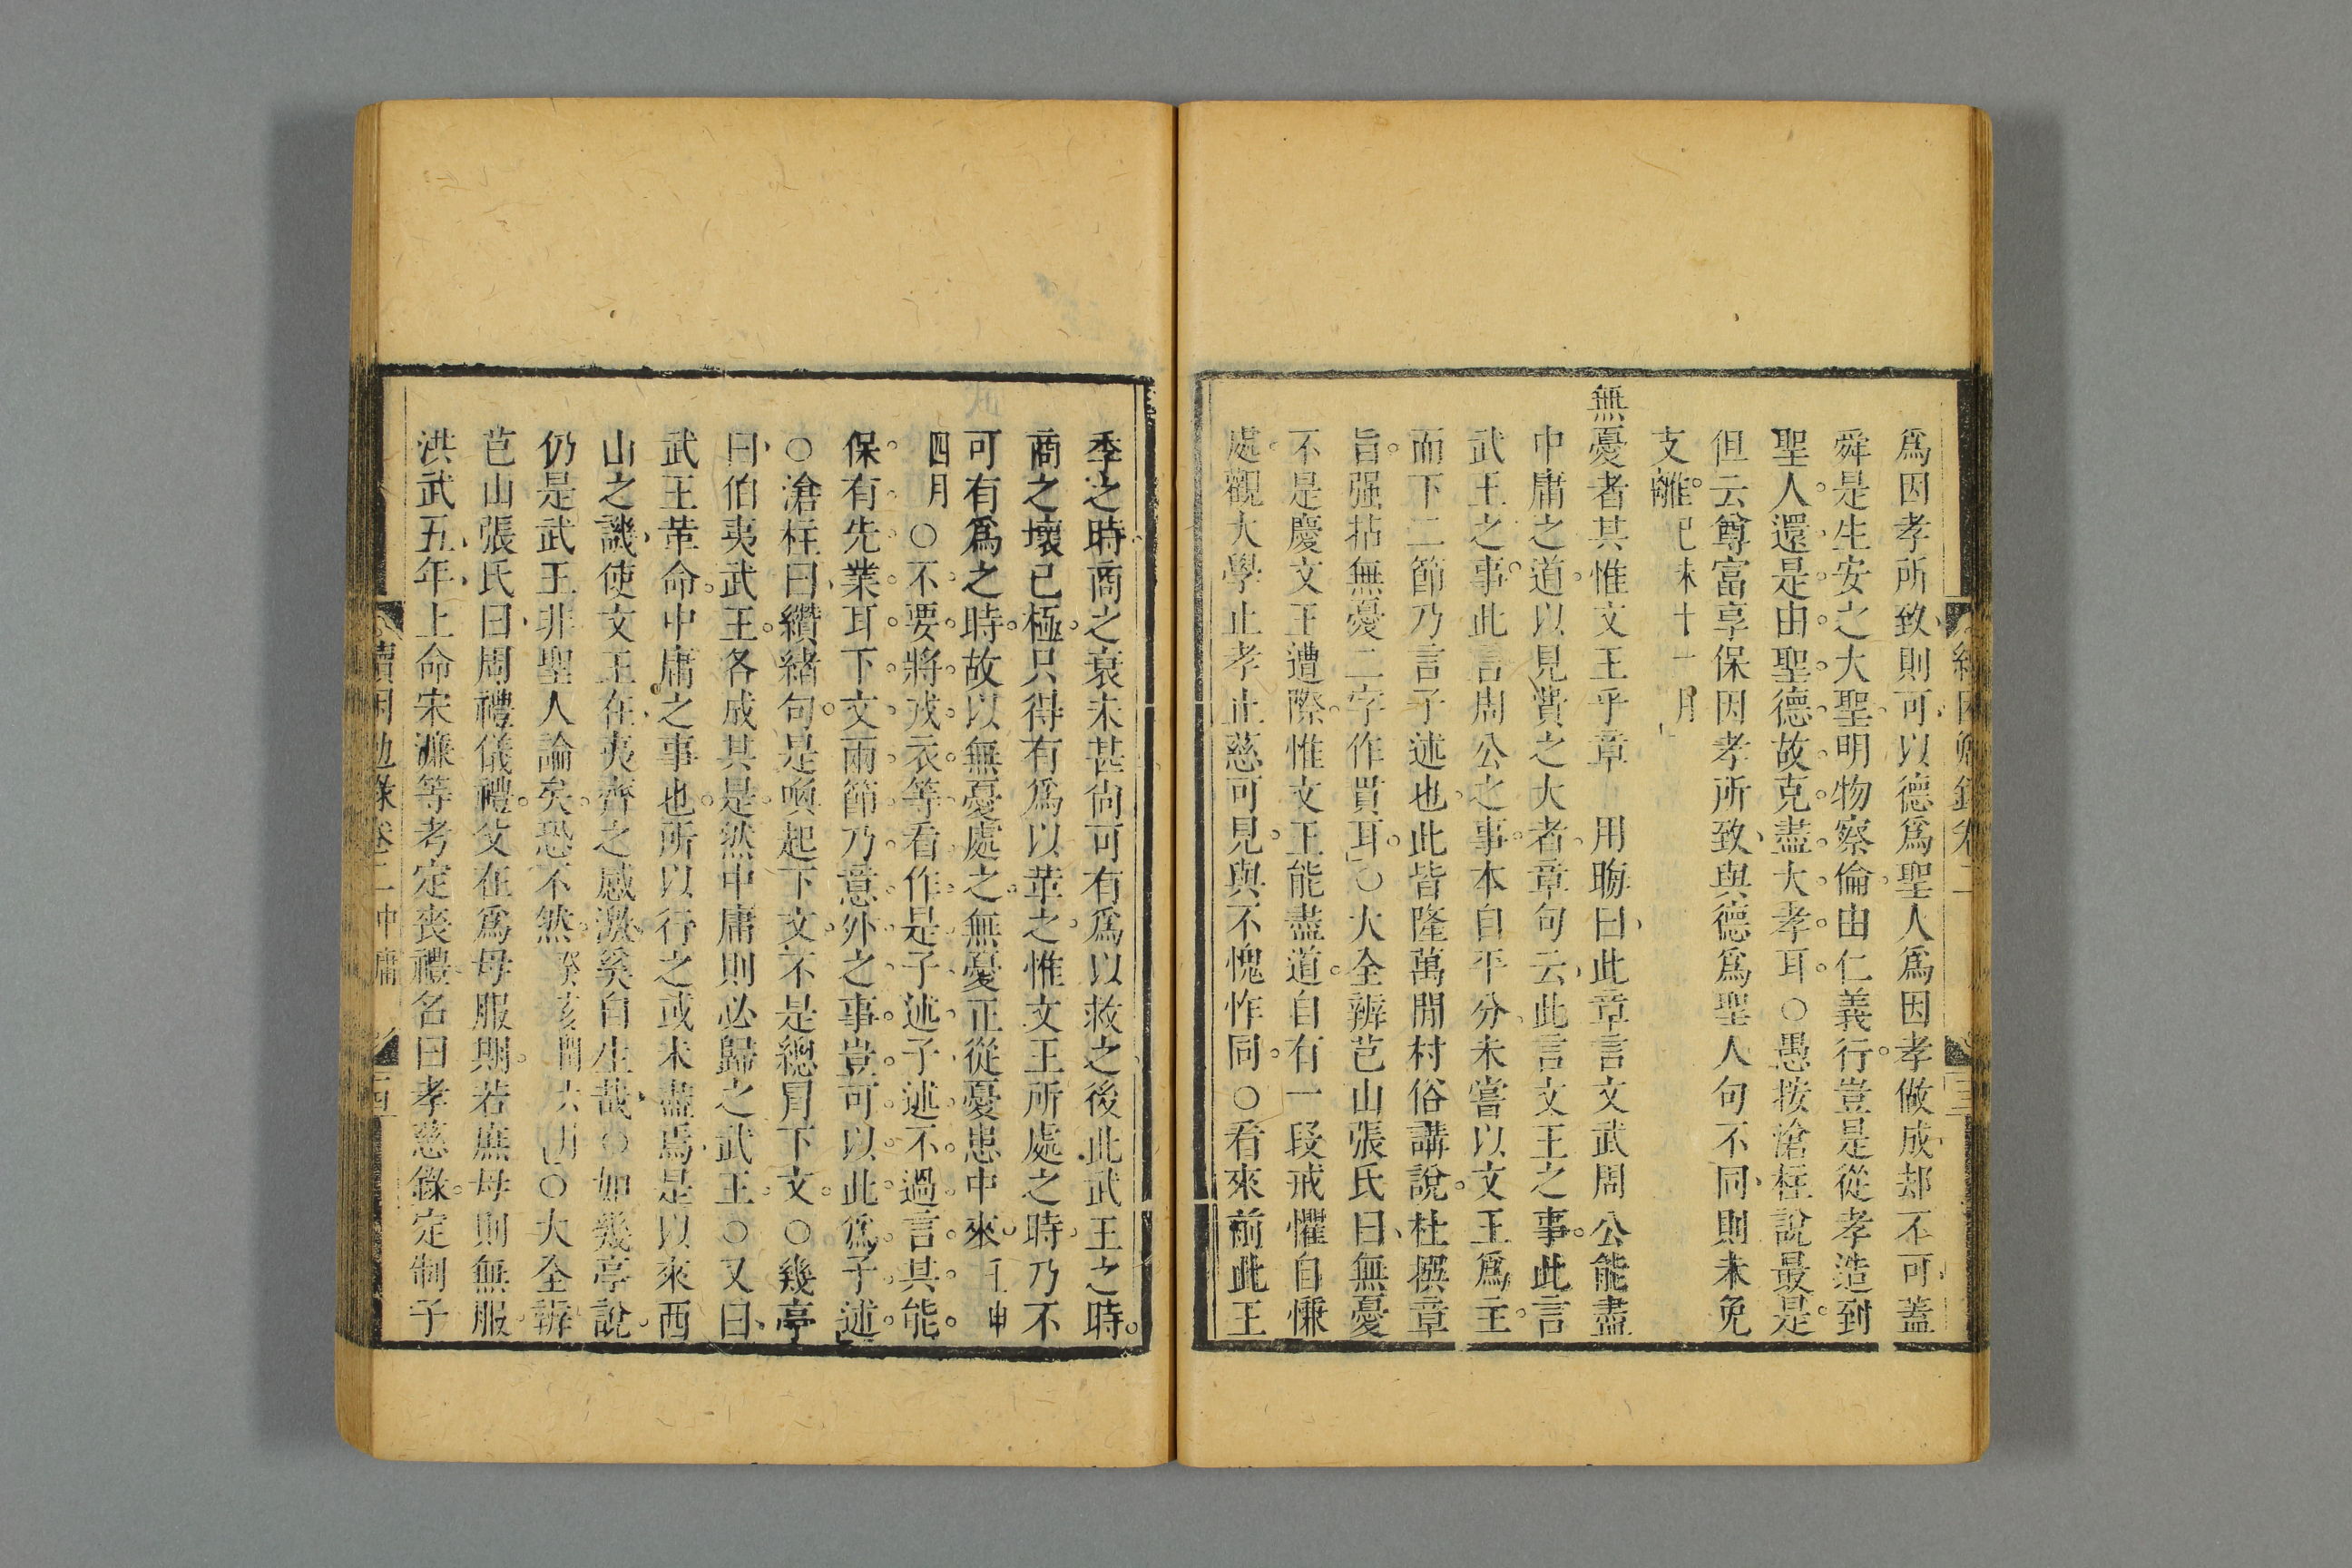 爲因孝所致則可以德爲聖人爲因孝做成却不可蓋
舜是生安之大聖明物察倫由仁義行豈是從孝造到
聖人還是由聖德故克盡大孝耳○愚按滄柱說最是
但云尊富享保因孝所致與德爲聖人句不同則未免
支離己未十一月
無憂者其惟文王乎章　用晦曰此章言文武周公能盡
中庸之道以見費之大者章句云此言文王之事此言
武王之事此言周公之事本自平分未嘗以文王爲主
而下二節乃言子述也此皆隆萬間村俗講說杜撰章
旨强拈無憂二字作貫耳○大全辨芑山張氏曰無憂
不是慶文王遭際惟文王能盡道自有一段戒懼自慊
處觀大學止孝止慈可見與不愧怍同○看來前此王
季之時商之衰未甚尙可有爲以救之後此武王之時
商之壞已極只得有爲以革之惟文王所處之時乃不
可有爲之時故以無憂處之無憂正從憂患中來壬申
四月○不要將戎衣等看作是子述子述不過言其能
保有先業耳下文兩節乃意外之事豈可以此爲子述
○滄柱曰纘緒句是喚起下文不是總冒下文○幾亭
曰伯夷武王各成其是然中庸則必歸之武王○又曰
武王革命中庸之事也所以行之或未盡焉是以來西
山之譏使文王在夷齊之感激奚自生哉○如幾亭說
仍是武王非聖人論矣恐不然癸亥閏六月○大全辨
芑山張氏曰周禮儀禮父在爲母服期若庶母則無服
洪武五年上命宋濂等考定喪禮名曰孝慈錄定制子
續困勉錄卷二中庸